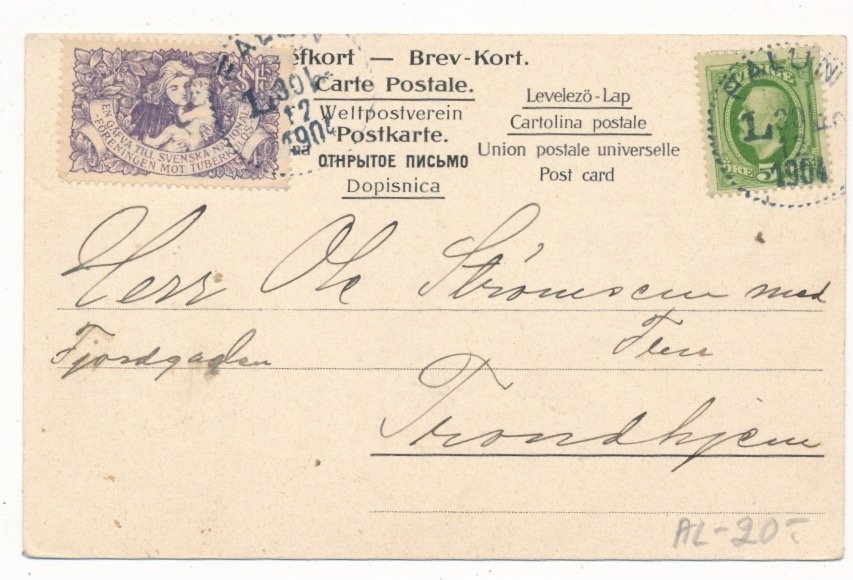 efkort — Brev-Kort.
Carte Postale.
Weltpostverein
Postkarte.
ОТКРЫТОЕ ПИСЬМО
Dopisnica
Levelezö-Lap
Cartolina postale
Union postale universelle
Post card
EN GÅFVA TILL SVENSKA NATIONAL
-FÖRENINGEN MOT TUBERKULOS
FALUN
L
12
1904
FALUN
L
1904
ÖRE 5
Herr Ole Strömsem med
Fjordgaden Fru
Trondhjem
AL-20-